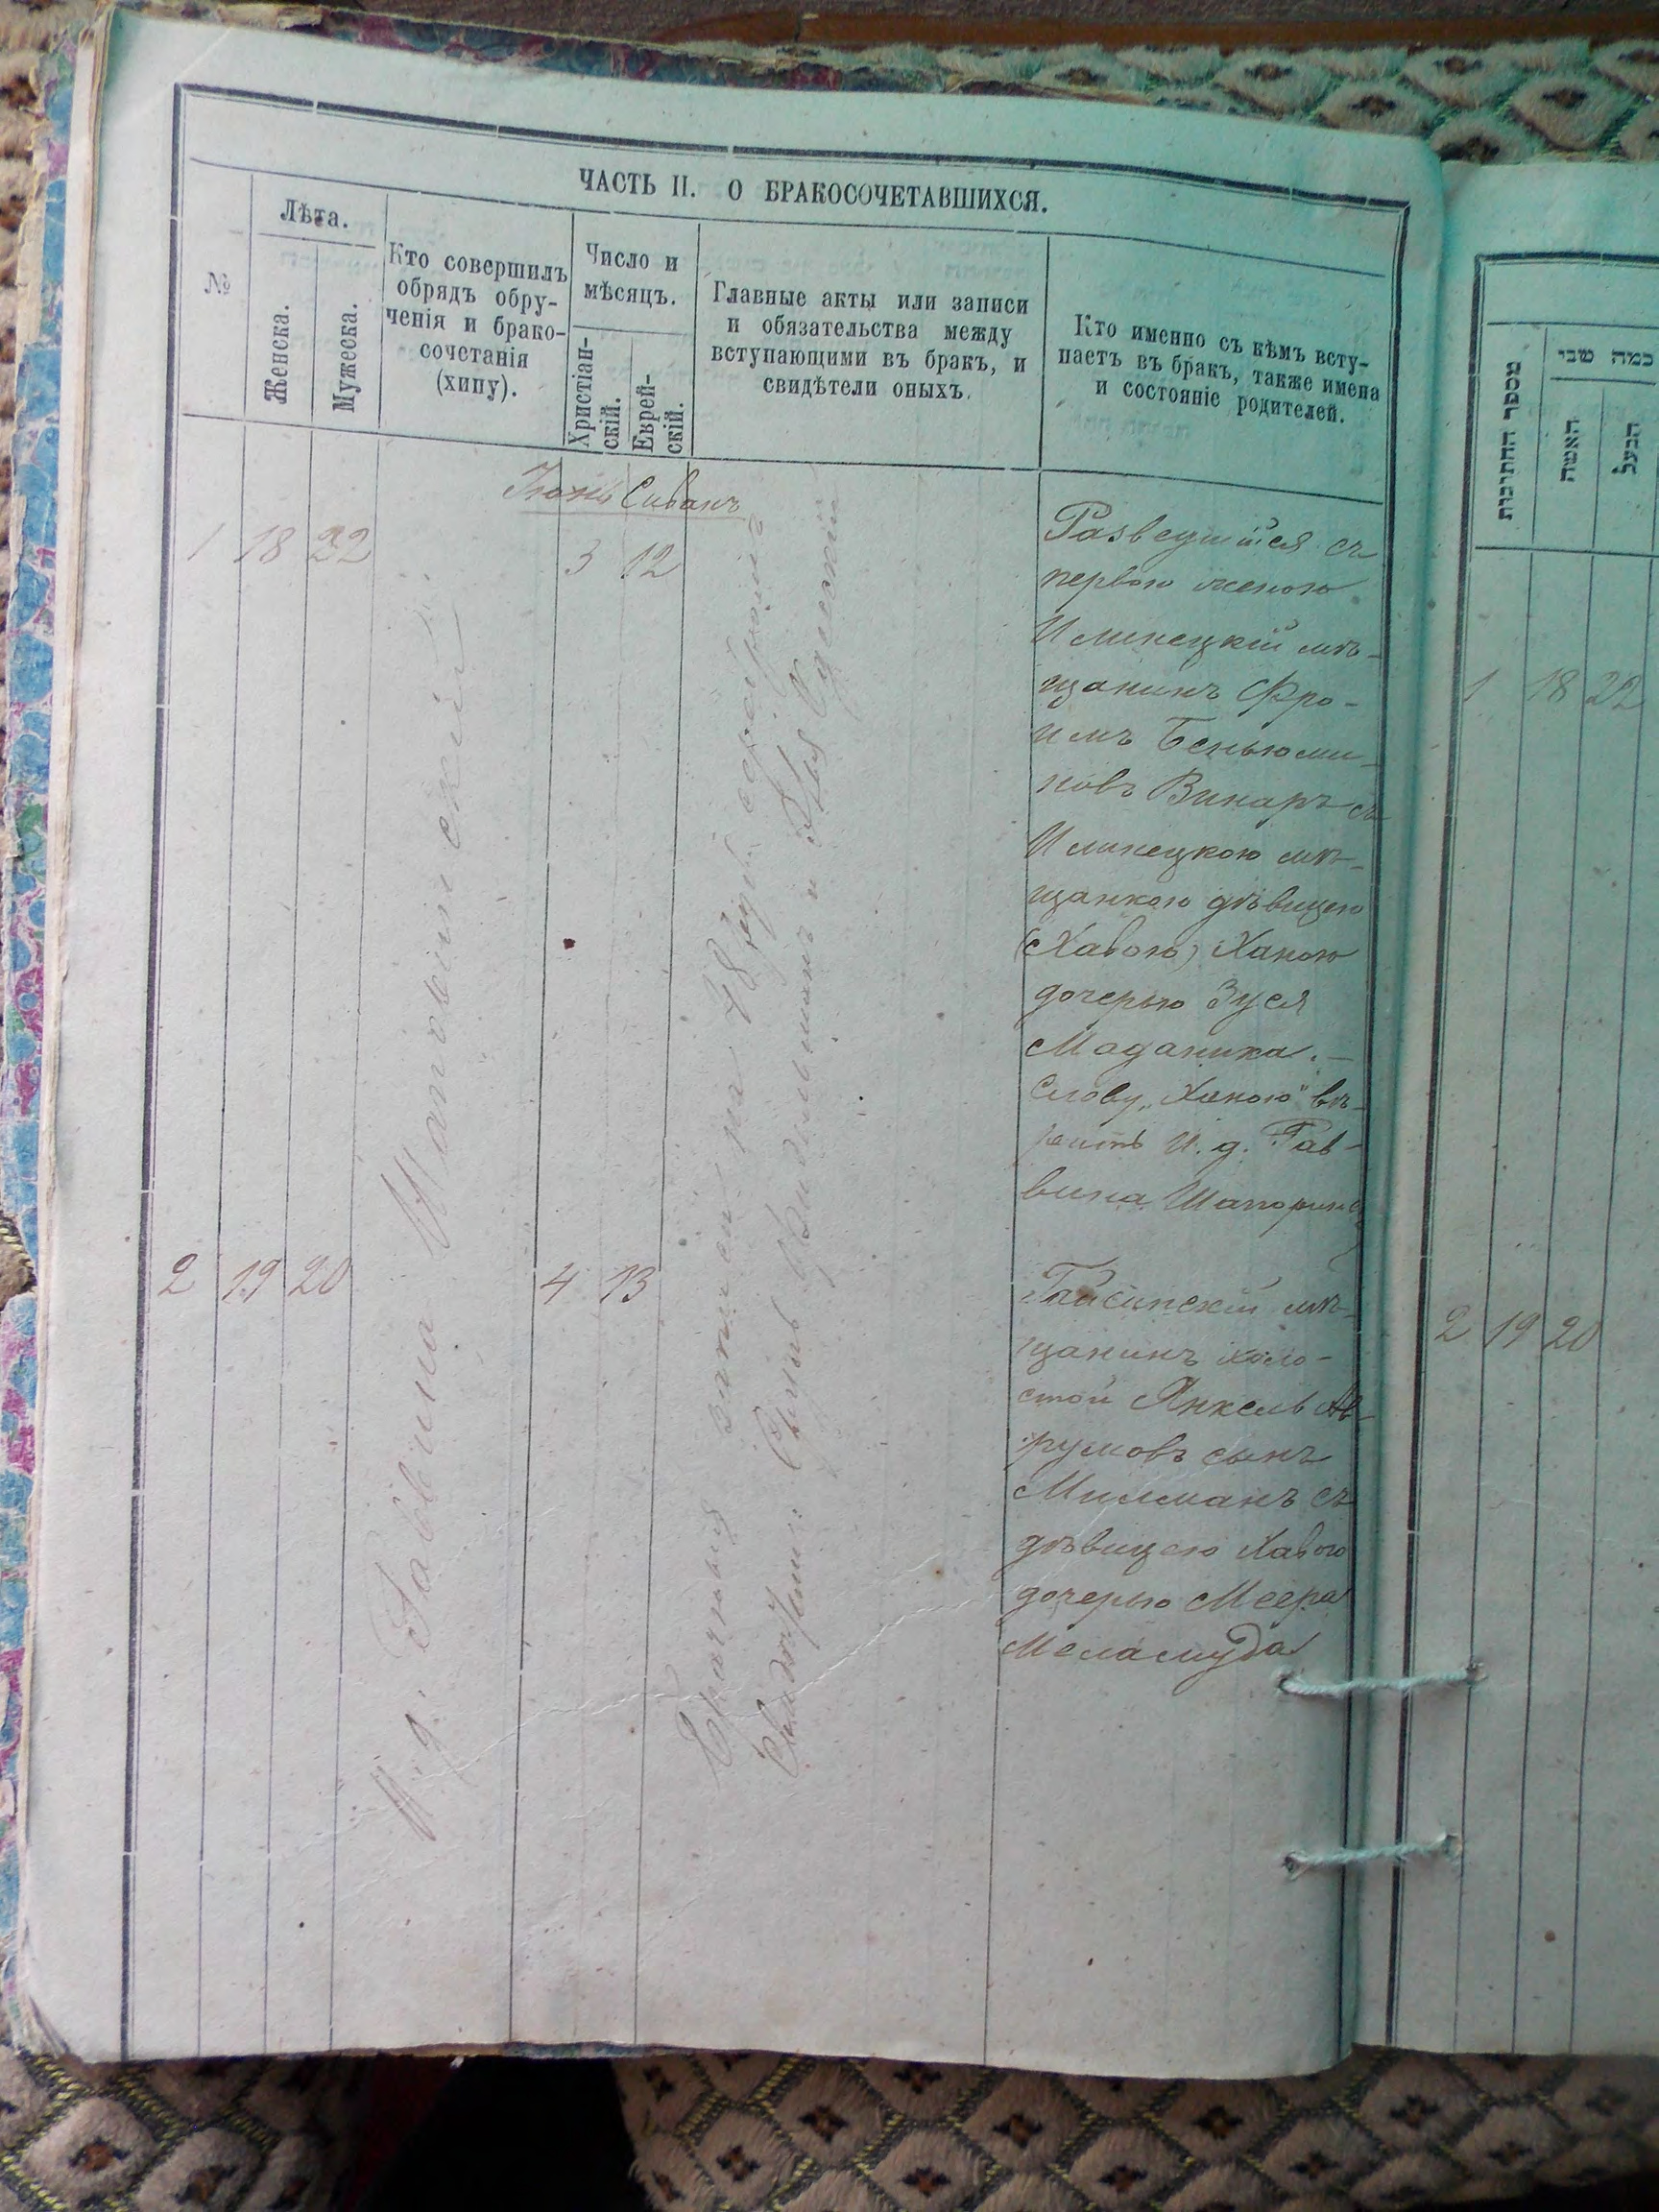 ЧАСТЬ II. О БРАКОСОЧЕТАВШИХСЯ.
№
Лѣта.
Женска.
Мужеска.
Кто совершилъ
обрядъ обру-
ченія и брако-
сочетанія
(хипу).
Число и
мѣсяцъ.
Христіан-
скій.
Еврей-
скій.
Главные акты или записи
и обязательства между
вступающими въ бракъ, и
свидѣтели оныхъ.
Кто именно съ кѣмъ всту-
паетъ въ бракъ, также имена
и состояніе родителей.
Іюнь Сиванъ
1 18 22
3 12
И. д. Раввина
Брачныя записи на 48 руб. серебромъ
Разведшійся съ
первою женою
Илинецкій мѣ-
щанинъ Фро-
имъ Беньюми-
новъ Винаръ съ
Илинецкою мѣ-
щанкою дѣвицею
(Хавою) Ханою
дочерью Зуся
Маданика.-
Слову „Ханою" вѣ-
рить И. д. Рав-
вина
2 19 20
4 13
Гайсинскій мѣ-
щанинъ холо-
стой Янкель Ав-
румовъ сынъ
Милманъ съ
дѣвицею Хавою
дочерью Меера
Меламуда
מספר החתונות
כמה שני
האשה
הבעל
1 18 22
2 19 20